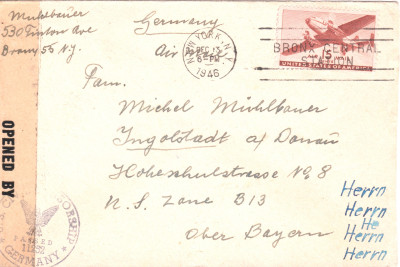 Germany
Muhlbauer
530 Tinton Ave
Bronx 55 N.Y.
Air
NEW YORK, N.Y.
DEC 13
6 PM
1946
BRONX CENTRAL
STATION
15
UNITED STATES OF AMERICA
Fam.
Michel Mühlbauer
Ingolstadt a/Donau
Hoheschulstrasse No. 8
U.S. Zone B13
Ober Bayern
OPENED BY
PASSED
GERMANY
Herrn
Herrn
He
Herrn
Herrn